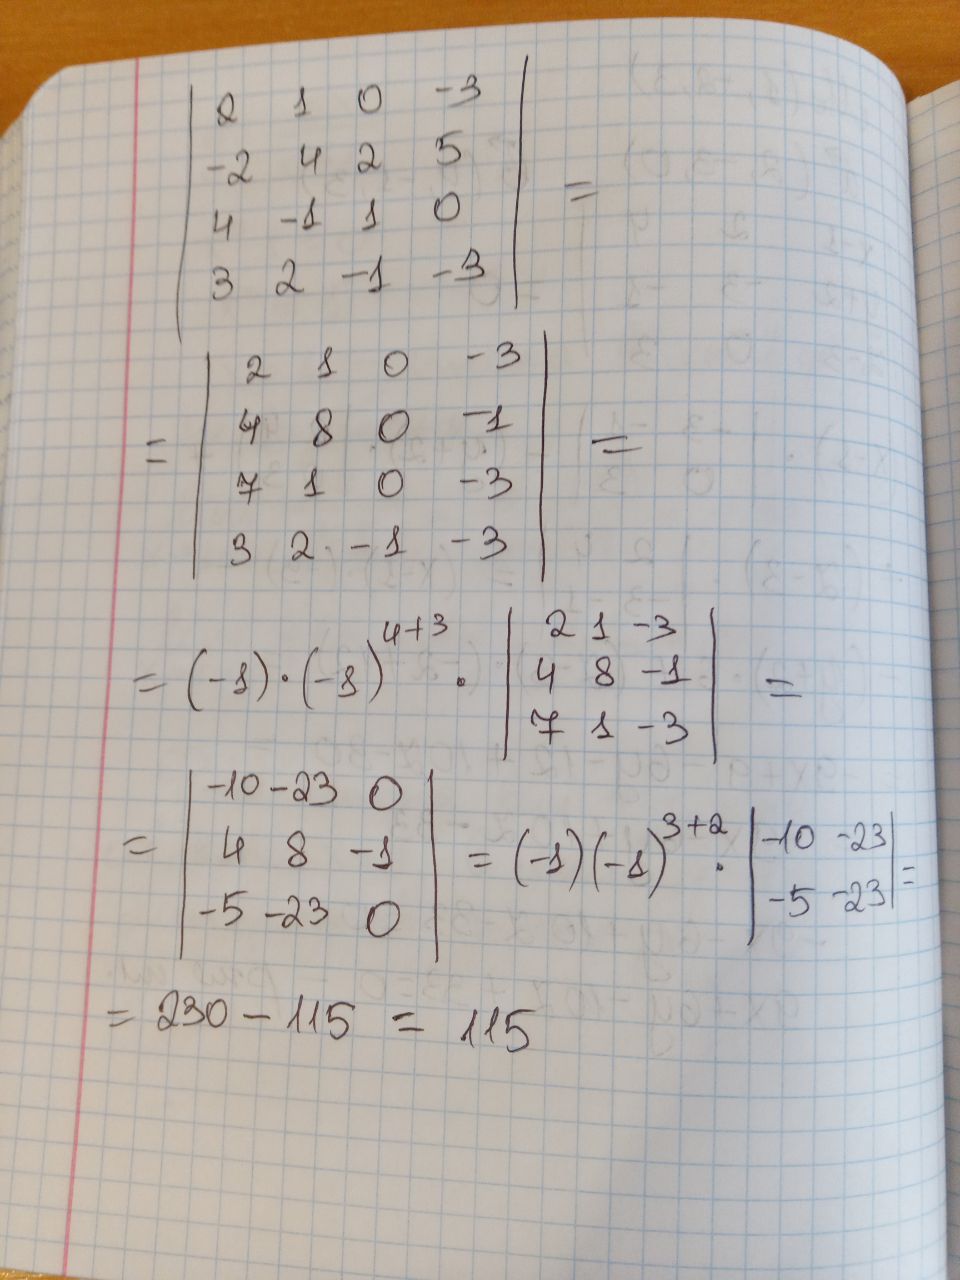 | 2 1 0 -3 |
| -2 4 2 5 | =
| 4 -1 1 0 |
| 3 2 -1 -3 |
| 2 1 0 -3 |
= | 4 8 0 -1 | =
| 7 1 0 -3 |
| 3 2 -1 -3 |
= (-1)·(-1)^{4+3} · | 2 1 -3 |
| 4 8 -1 | =
| 7 1 -3 |
= | -10 -23 0 |
| 4 8 -1 | = (-1)(-1)^{3+2} · | -10 -23 |
| -5 -23 0 | | -5 -23 | =
= 230 - 115 = 115